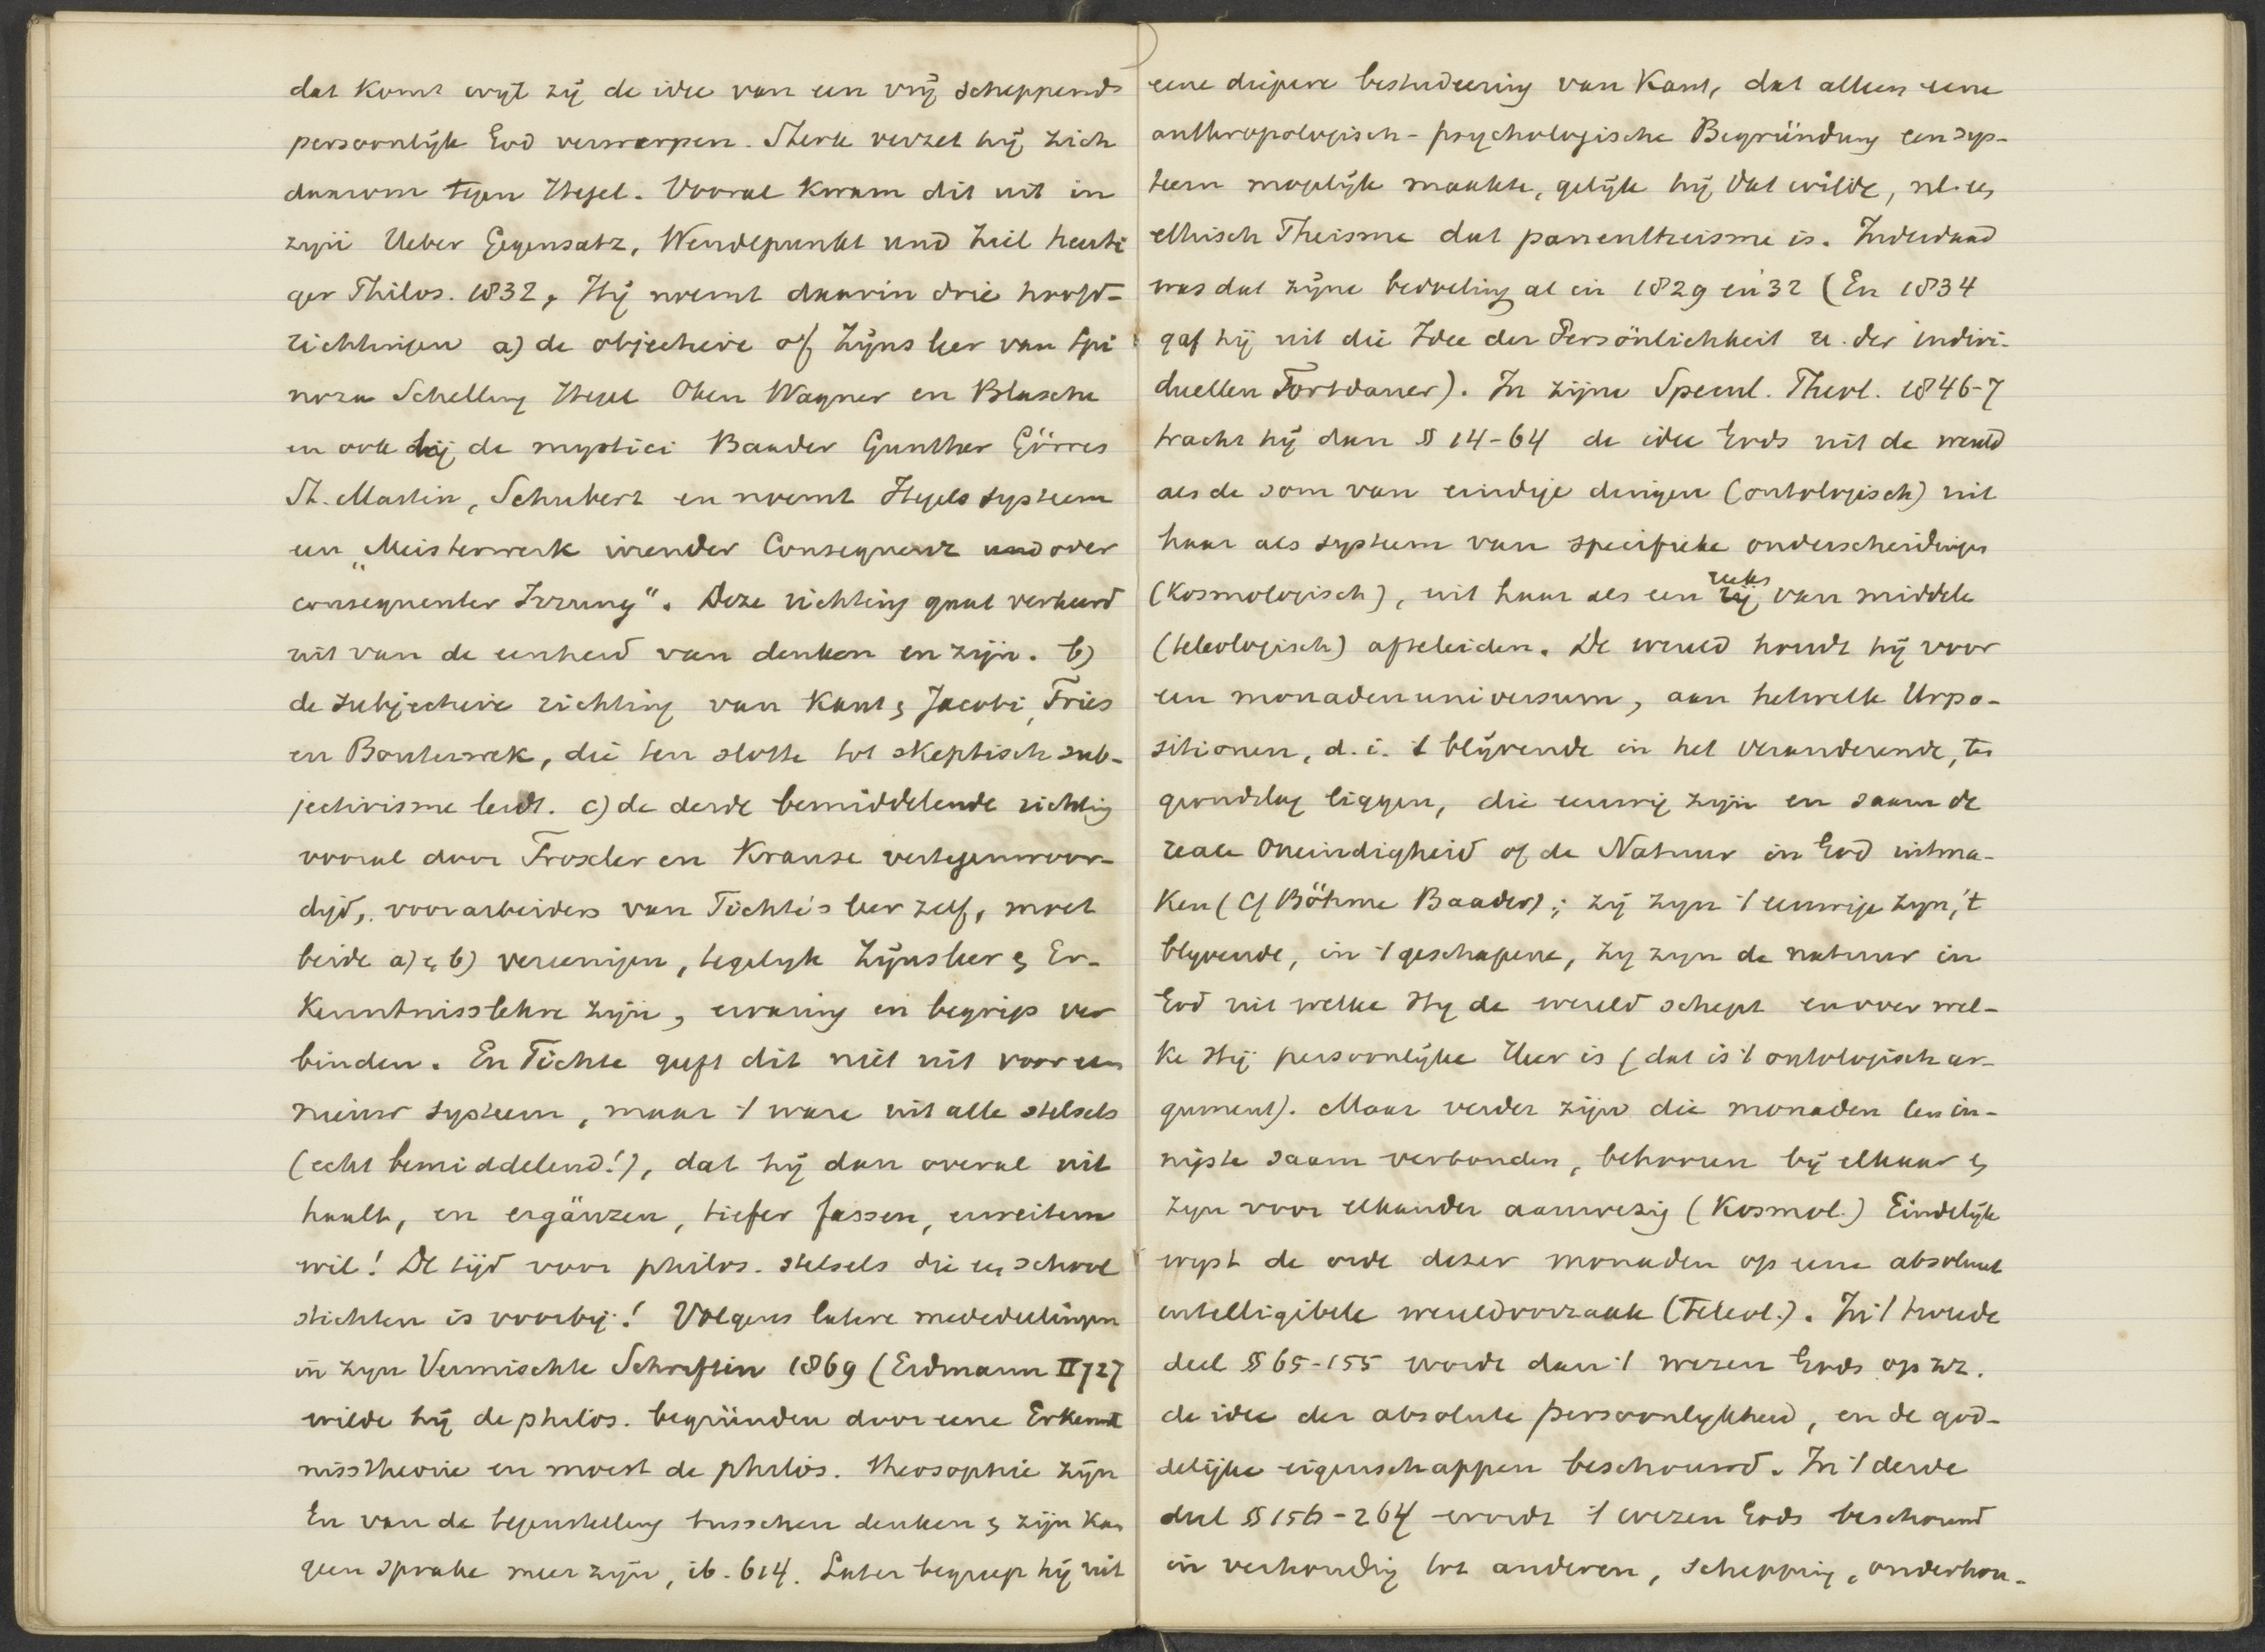 dat komt wijl zij de idee van een vrij scheppend
persoonlijk God verwerpen. Sterk verzet hij zich
daarom tegen Hegel. Vooral kwam dit uit in
zijn Ueber Gegensatz, Wendepunkt und Ziel heuti
ger Philos. 1832. Hij noemt daarin drie hoofd-
richtingen a) de objectieve of Zijnsleer van Spi
noza Schelling Hegel Oken Wagner en Blasche
en ook bij de mystici Baader Gunther Görres
St. Martin, Schubert en noemt Hegels systeem
een „Meisterwerk irrender Consequenz und oder
consequenter Irrung". Deze richting gaat verkeerd
uit van de eenheid van denken en zijn. b)
de subjectieve richting van Kant, Jacobi, Fries
en Bouterwek, die ten slotte tot skeptisch sub-
jectivisme leidt. c) de derde bemiddelende richting
vooral door Troxler en Krause vertegenwoor-
digd, voorarbeiders van Fichte's leer zelf, moet
beide a) & b) vereenigen, tegelijk Zijnsleer & Er-
kenntnisslehre zijn, ervaring en begrip ver
binden. En Fichte geeft dit niet uit voor een
nieuw systeem, maar 't ware uit alle stelsels
(echt bemiddelend!), dat hij dan overal uit
haalt, en ergänzen, tiefer fassen, erweitern
wil! De tijd voor philos. stelsels die een school
stichten is voorbij! Volgens latere mededeelingen
in zijn Vermischte Schriften 1869 (Erdmann II 727
wilde hij de philos. begründen door eene Erkennt
nisstheorie en moest de philos. theosophie zijn
En van de tegenstelling tusschen denken & zijn kan
geen sprake meer zijn, ib. 614. Later begreep hij uit
eene diepere bestudeering van Kant, dat alleen eene
anthropologisch-psychologische Begründung een sys-
teem mogelijk maakte, gelijk hij dat wilde, nl. een
ethisch Theisme dat panentheisme is. Inderdaad
was dat zijne bedoeling al in 1829 en '32 (En 1834
gaf hij uit die Idee der Persönlichkeit u. der indivi-
duellen Fortdauer). In zijne Specul. Theol. 1846-7
tracht hij dan §§ 14-64 de idee Gods uit de wereld
als de som van eindige dingen (ontologisch) uit
haar als systeem van specifieke onderscheidingen
(kosmologisch), uit haar als een rij reeks van middele
(teleologisch) afteleiden. De wereld houdt hij voor
een monadenuniversum, aan hetwelk Urpo-
sitionen, d.i. 't blijvende in het veranderende, ten
grondslag liggen, die eeuwig zijn en saam de
reale Oneindigheid of de Natuur in God uitma-
ken (cf Böhme Baader); zij zijn 't eeuwige zijn, 't
blijvende, in 't geschapene, zij zijn de natuur in
God uit welke Hij de wereld schept en over wel-
ke Hij persoonlijke Heer is (dat is 't ontologisch ar-
gument). Maar verder zijn die monaden ten in-
nigste saam verbonden, behooren bij elkaar &
zijn voor elkander aanwezig (Kosmol.) Eindelijk
wijst de orde dezer monaden op eene absoluut
intelligibele wereldoorzaak (Teleol.). In 't tweede
deel §§ 65-155 wordt dan 't wezen Gods op zz.
de idee der absolute persoonlijkheid, en de god-
delijke eigenschappen beschouwd. In 't derde
deel §§ 156-264 wordt 't wezen Gods beschouwd
in verhouding tot anderen, schepping, onderhou-